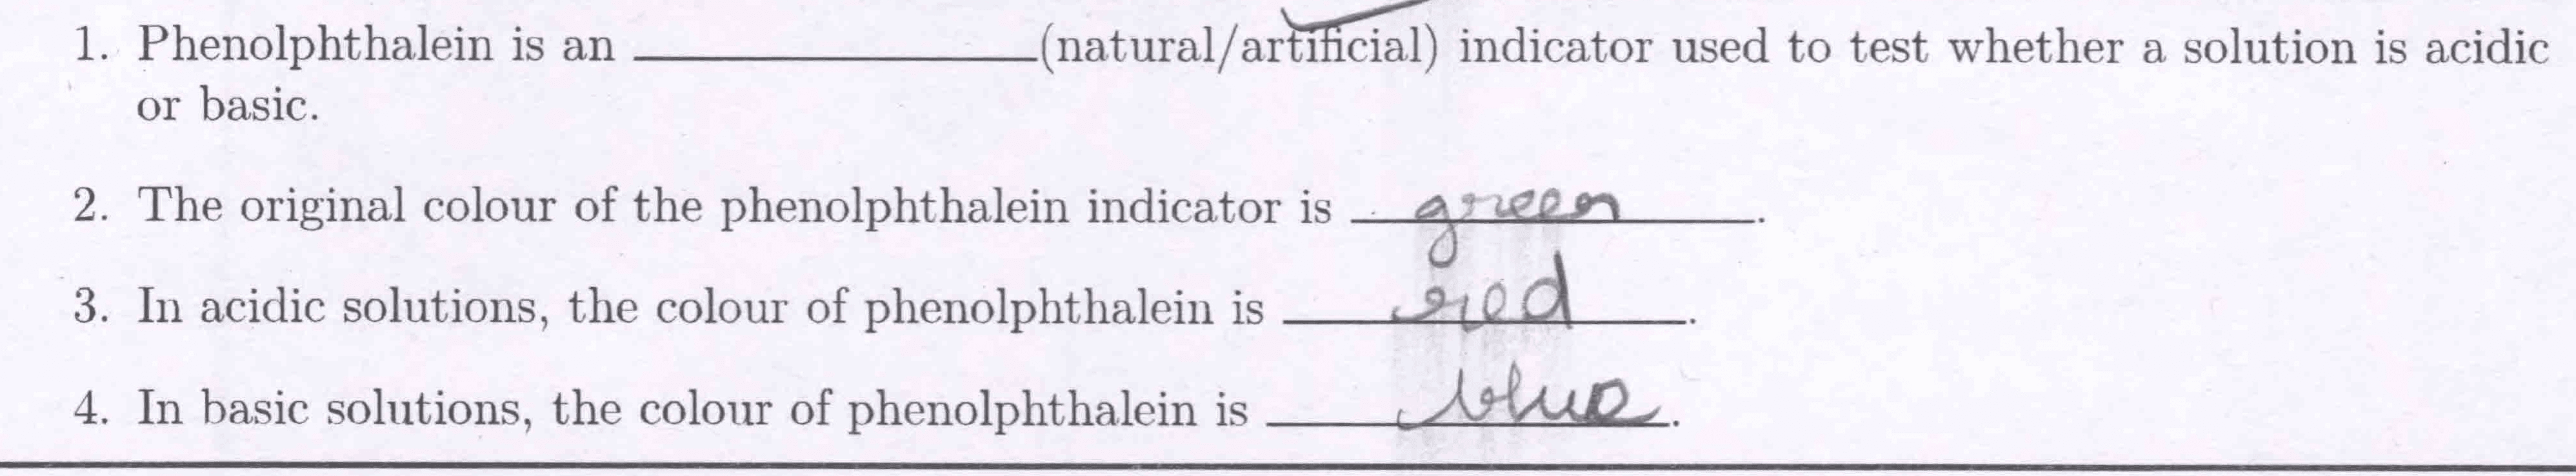 1. Phenolphthalein is an ____________(natural/artificial) indicator used to test whether a solution is acidic
or basic.
2. The original colour of the phenolphthalein indicator is green.
3. In acidic solutions, the colour of phenolphthalein is red.
4. In basic solutions, the colour of phenolphthalein is blue.